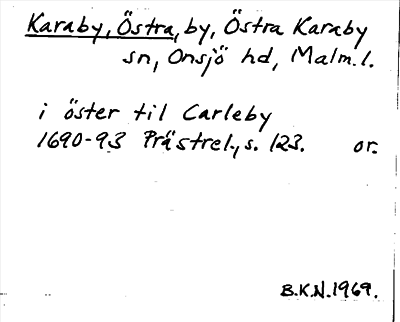 Karaby, Östra, by, Östra Karaby
sn, Onsjö hd, Malm. l.
i öster til Carleby
1690-93 Prästrel., s. 123. or.
B.K.N. 1969.